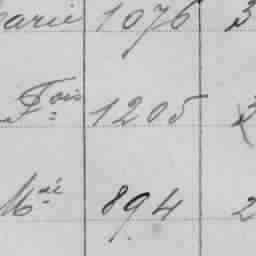 arie 1076 3
Fois 1205 3
Mé 894 2